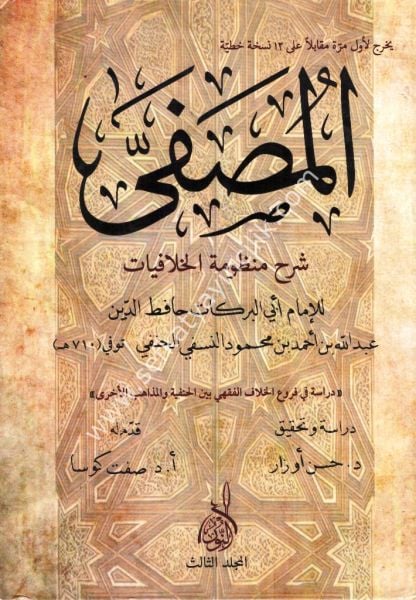 يخرج لأول مرة مقابلاً على ١٢ نسخة خطية
المُصَفَّى
شرح منظومة الخلافيات
للإمام أبي البركات حافظ الدين
عبدالله بن أحمد بن محمود النسفي الحنفي توفي (٧١٠هـ)
«دراسة في فروع الخلاف الفقهي بين الحنفية والمذاهب الأخرى»
دراسة وتحقيق
د. حسن أوزار
قدم له
أ.د. صفت كوسا
النور
المجلد الثالث